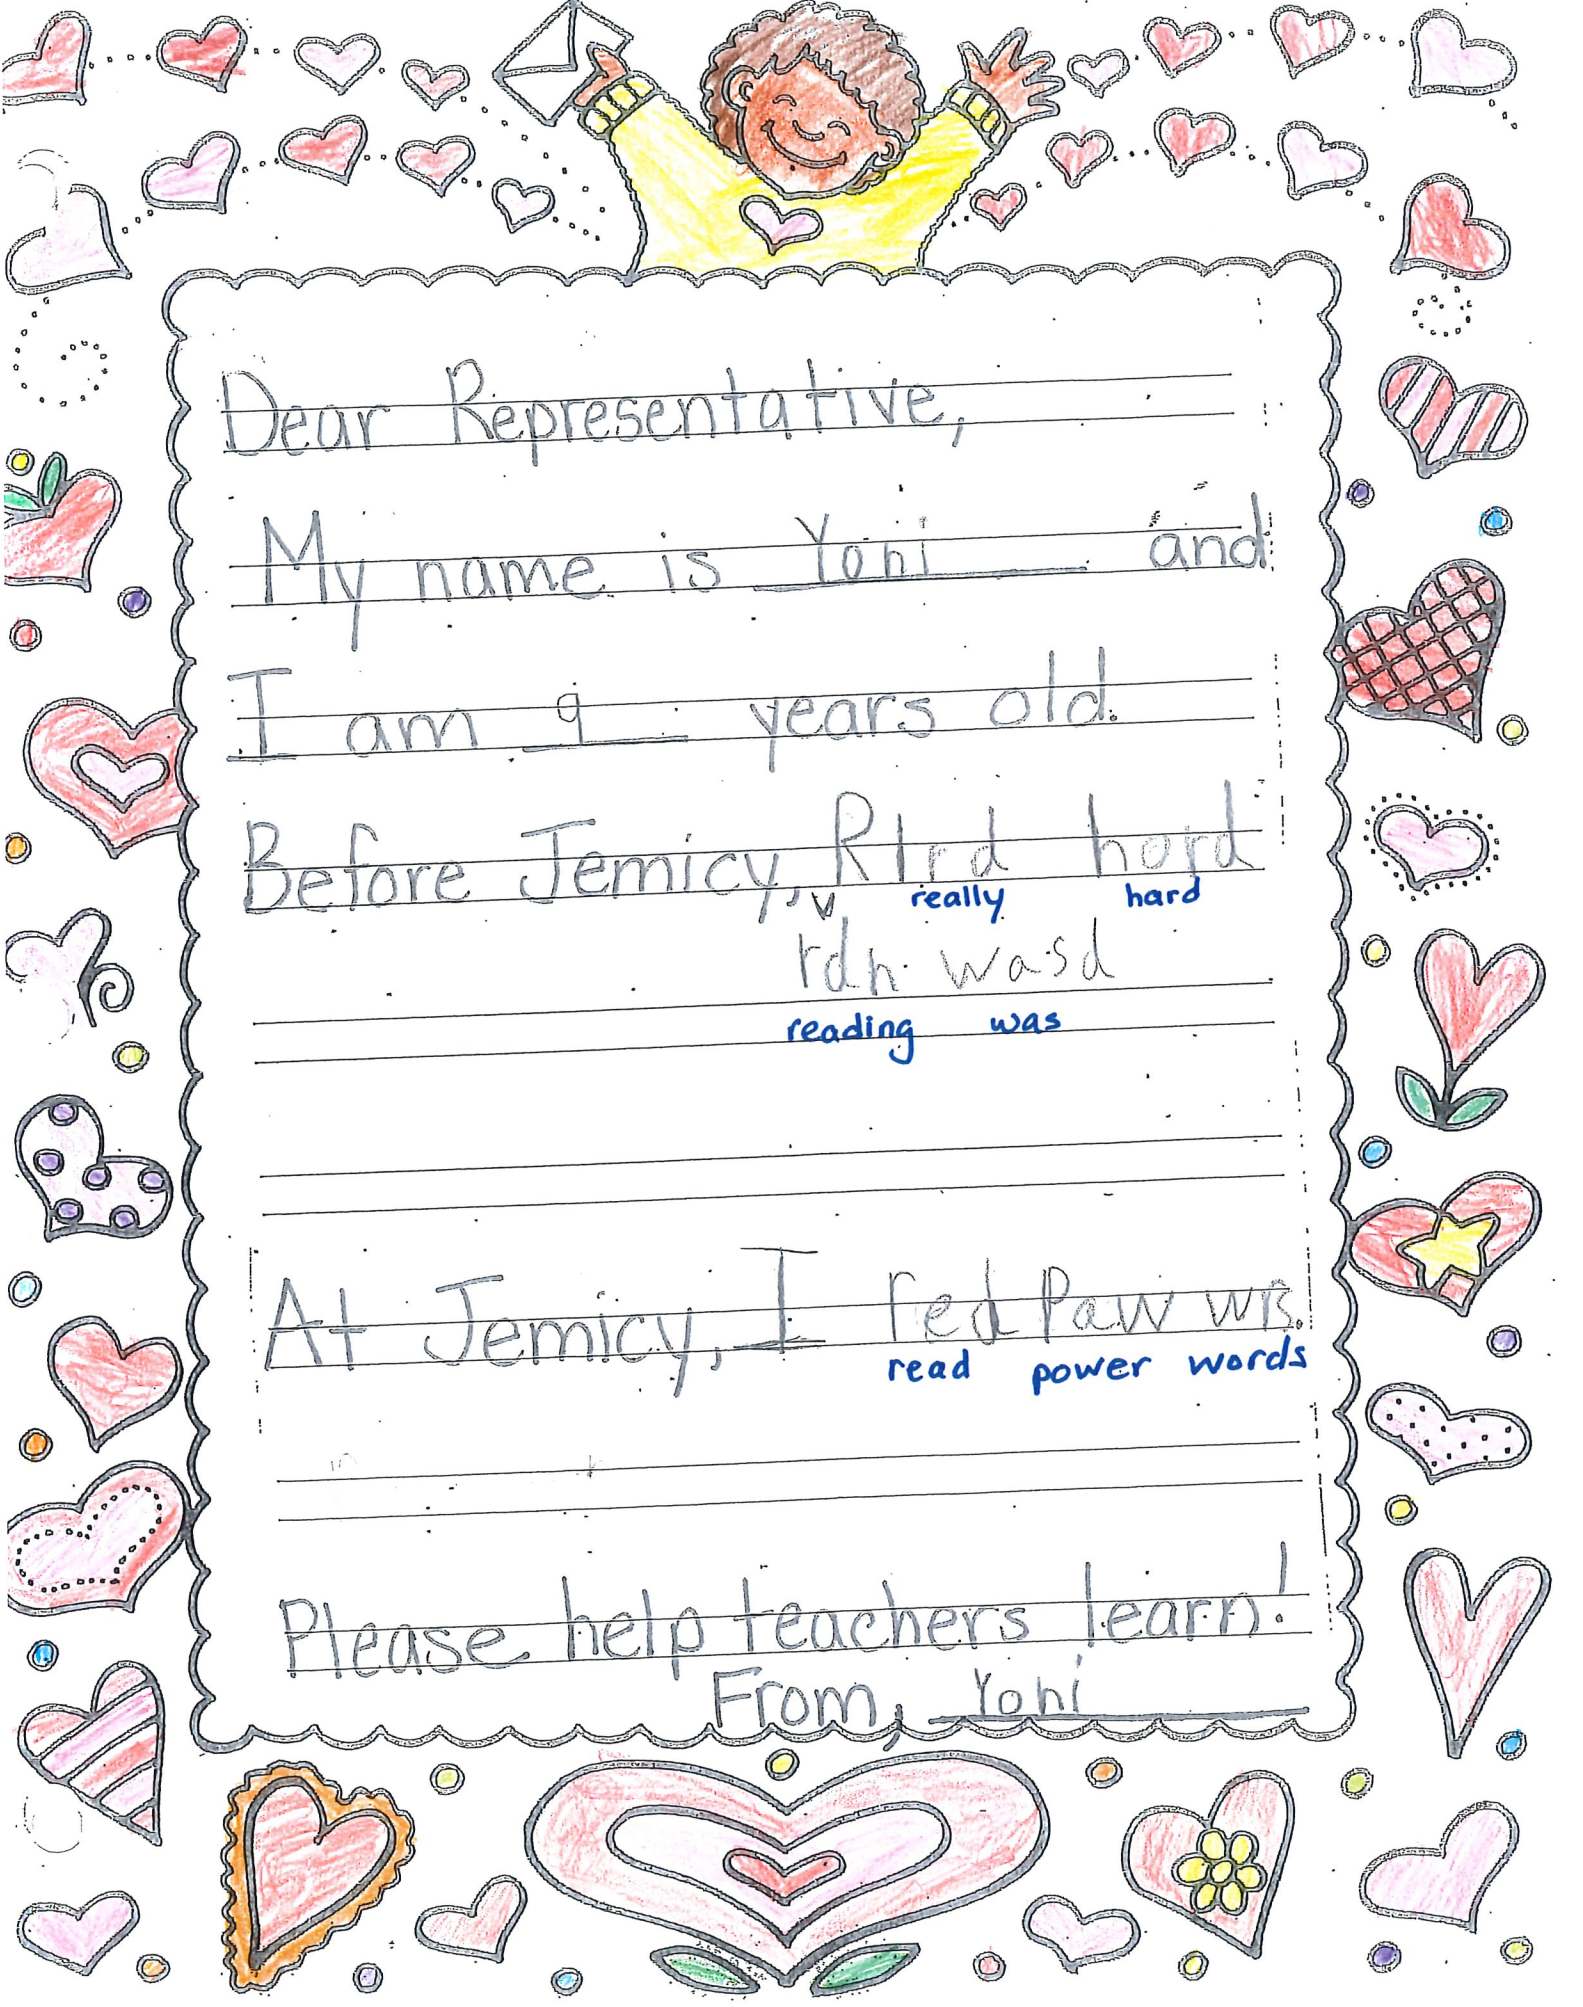 Dear Representative,
My name is Yoni and
I am 9 years old.
Before Jemicy, Rlrd hord
really hard
rdn wasd
reading was
At Jemicy, I red Paw wrs.
read power words
Please help teachers learn!
From, Yoni